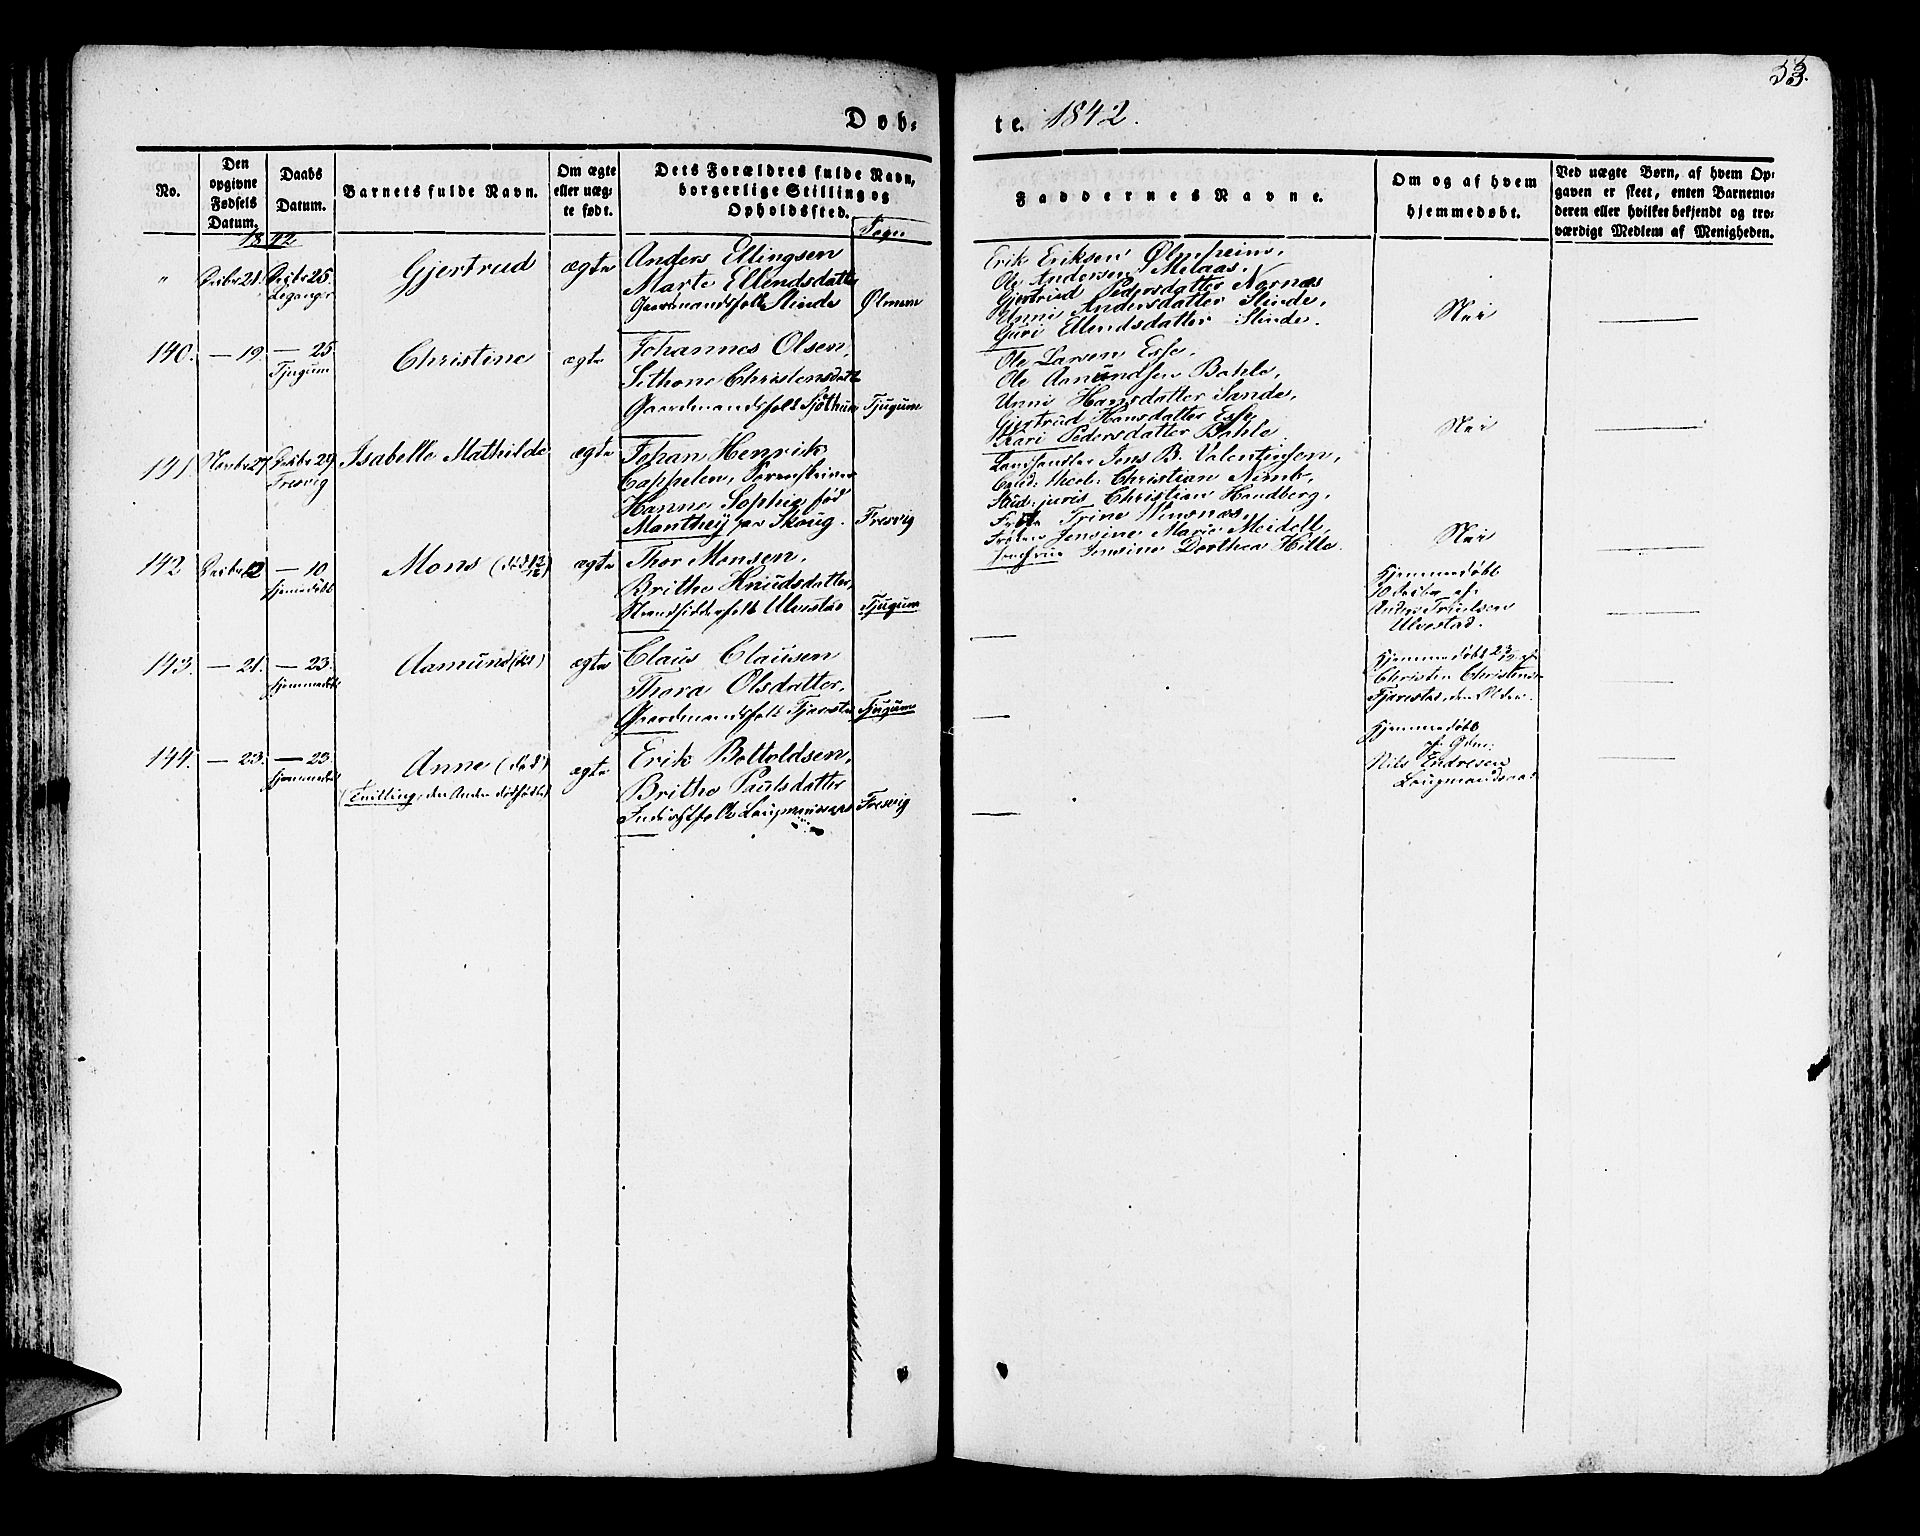 33.
Døb-
te. 1842.
No.
Den opgivne Fødsels Datum.
Daabs Datum.
Barnets fulde Navn.
Om ægte eller uæg-
te født.
Dets Forældres fulde Navn,
borgerlige Stilling og
Opholdssted.
Sogn
Faddernes Navne.
Om og af hvem
hjemmedøbt.
Ved uægte Børn, af hvem Op-
gaven er skeet, enten Barnemo-
deren eller hvilket bekjendt og tro-
værdigt Medlem af Menigheden.
1842
" Decbr 21. Decbr 25 Leganger
Gjertrud
ægte
Anders Ellingsen
Marte Ellendsdatter
Gaardmandsfolk Slinde
Ølmem
Erik Eriksen Ølmheim,
Ole Andersen Melaas,
Gjertrud Pedersdatter Nornæs
Unni Andersdatter Slinde,
Guri Ellendsdatter Slinde.
Nei
140. — 19. — 25 Tjugum
Christine
ægte
Johannes Olsen,
Sithone Christensdatt
Gaardmandsfolk
Tjugum
Ole Larsen Esse,
Ole Aamundsen Bahle,
Unni Hansdatter Sande,
Gjertrud Hansdatter Esse,
Kari Pedersdatter Bahle
Nei
141. Novbr 27 Decbr 27 Fresvig
Isabelle Mathilde
ægte
Johan Henrik
Cappelen, Sorenskriver
Hanne Sophie fød
Manthey paa Skoug.
Fresvig
Landhandler Jens B. Valentinsen,
Cand: theol: Christian Nimb,
Stud: juris Christian Handberg,
Trine Winsnæs,
Frøken Jensine Marie Meidell,
Jomfrue Jensine Dorthea Hille.
Nei
142 Decbr — 10 hjemmedøbt
Mons (død 12/12)
ægte
Thor Monsen,
Brithe Knudsdatter,
Strandsidderfolk Ulvestad
Tjugum
Hjemmedøbt
10 Decbr af
Anders Truelsen
Ulvestad.
143. — 21. — 23. hjemmedøbt
Aamund (død)
ægte
Claus Clausen
Thora Olsdatter,
Gaardmandsfolk Tjørestad
Tjugum
Hjemmedøbt 23/12 af
Christen Christens
Tjørestad,
144. — 23. — 23. hjemmedøbt
Anne (død)
(Tvilling, den Anden dødfødt)
ægte
Erik Bottoldsen,
Brithe Paulsdatter
Inderstfolk
Fresvig
Hjemmedøbt
af Gdm:
Nils Endresen